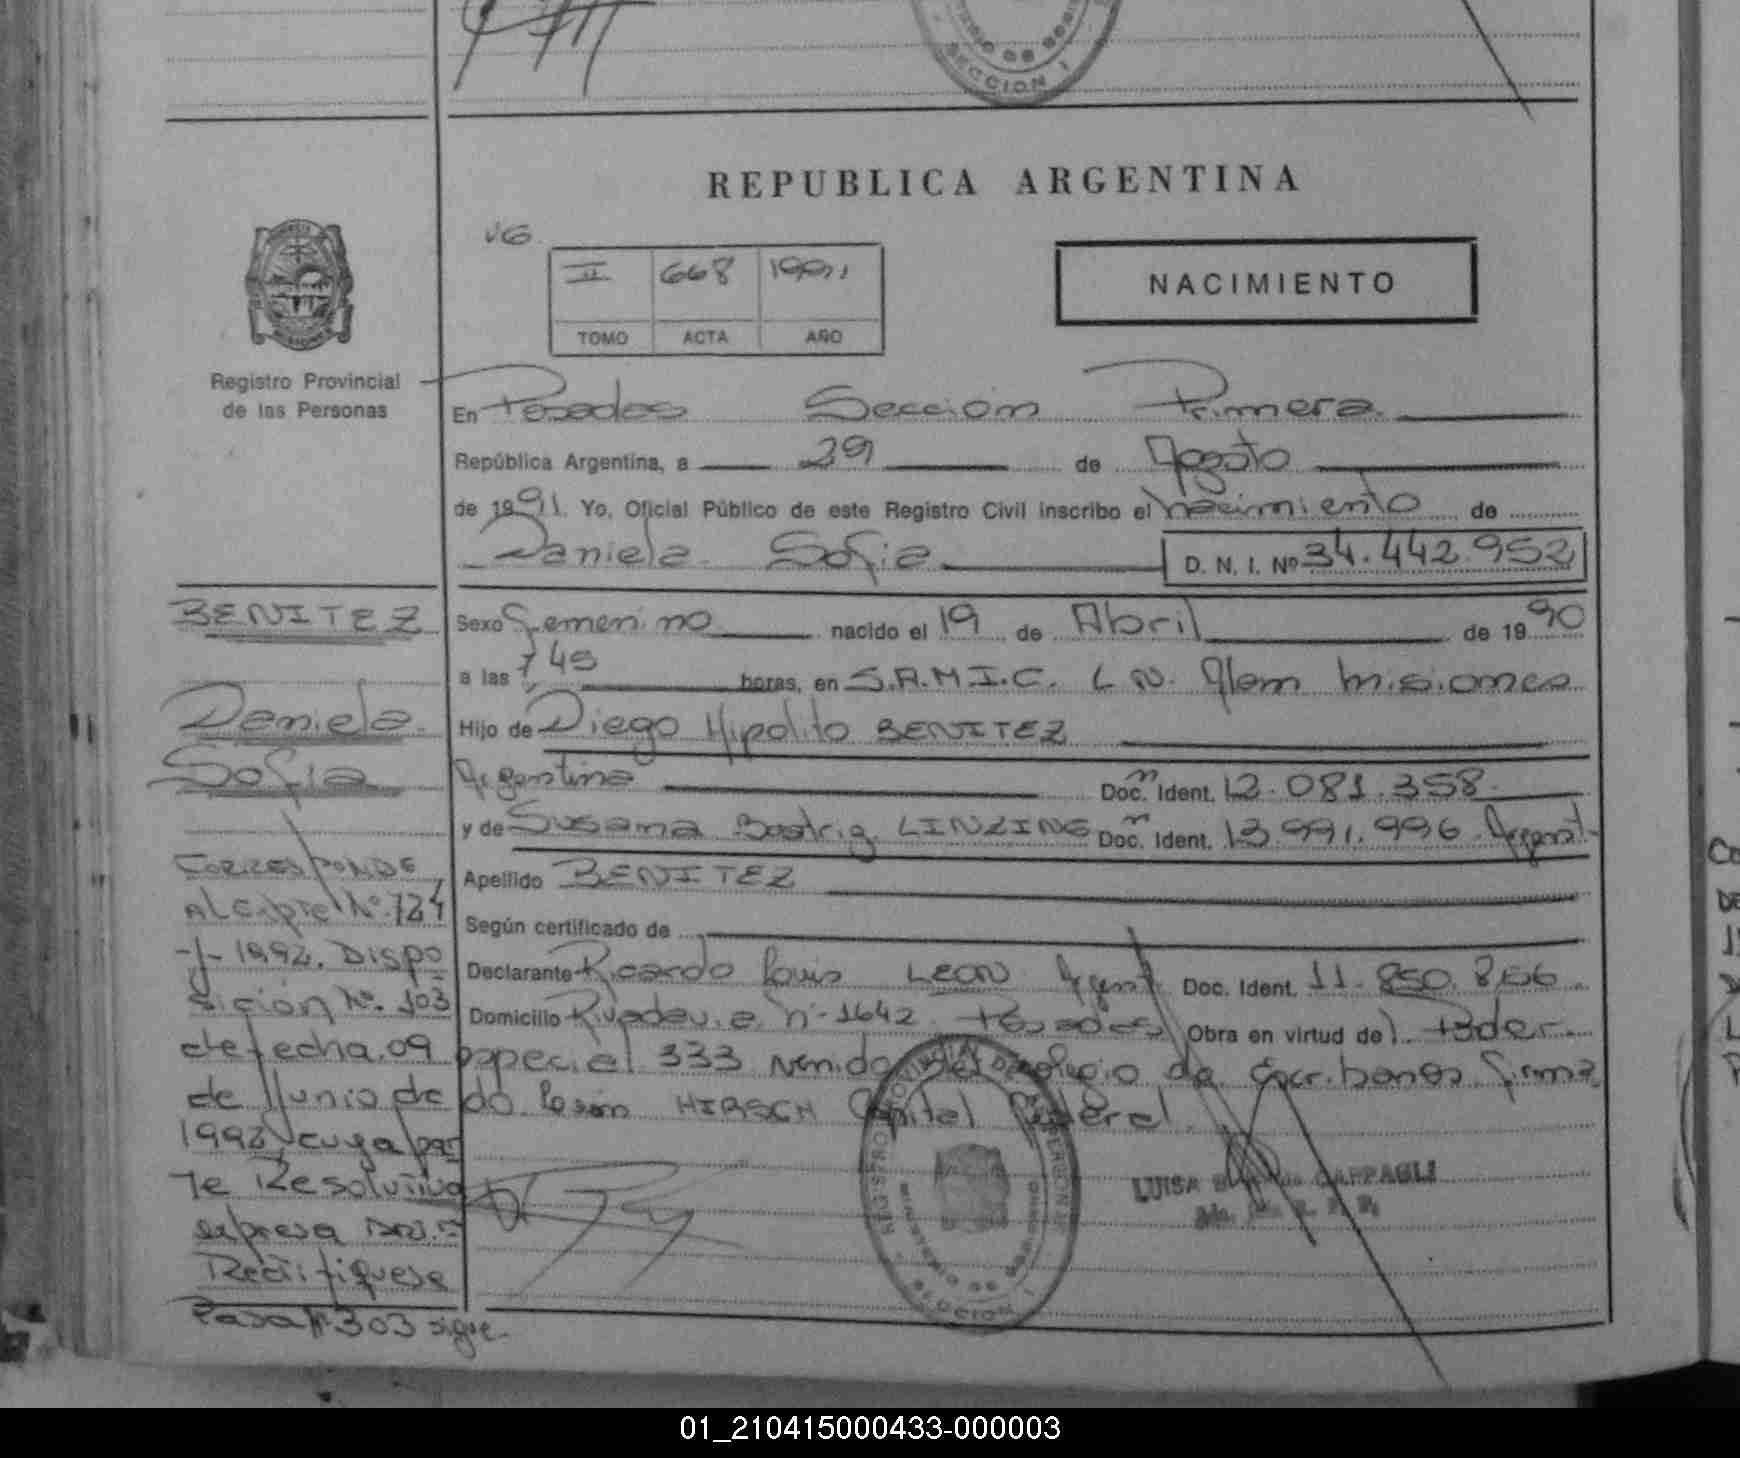 SECCION I
REPUBLICA ARGENTINA
VG
II 668 1991
TOMO ACTA AÑO
NACIMIENTO
Registro Provincial
de las Personas
En Posadas Sección Primera
República Argentina, a 29 de Agosto
de 1991. Yo, Oficial Público de este Registro Civil inscribo el nacimiento de
Daniela Sofia D. N. I. Nº 34.442.952
Sexo Femenino nacido el 19 de Abril de 1990
a las 7,45 horas, en S.A.M.I.C. L N. Alem Misiones
Hijo de Diego Hipolito BENITEZ
Argentina Doc. Ident. 12.081.358
y de Susana Beatriz LINZING Doc. Ident. 13.991.996 Argent.
Apellido BENITEZ
Según certificado de
Declarante Ricardo Luis LEON Argent Doc. Ident. 11.850.856
Domicilio Rivadavia nº 1642 Posadas Obra en virtud de Poder
especial 333 Colegio de Escribanos firma
do León HIRSCH Capital Federal
LUISA CAPPAGLI
SECCION I
BENITEZ
Daniela
Sofia
CORRESPONDE
Al Expte Nº. 724
-J- 1992. Dispo
sición Nº. 103
de fecha 09
de Junio de
1992, cuya par
te Resolutiva
expresa
Rectifíquese
Pasa Fº 303 sigue-
01_210415000433-000003